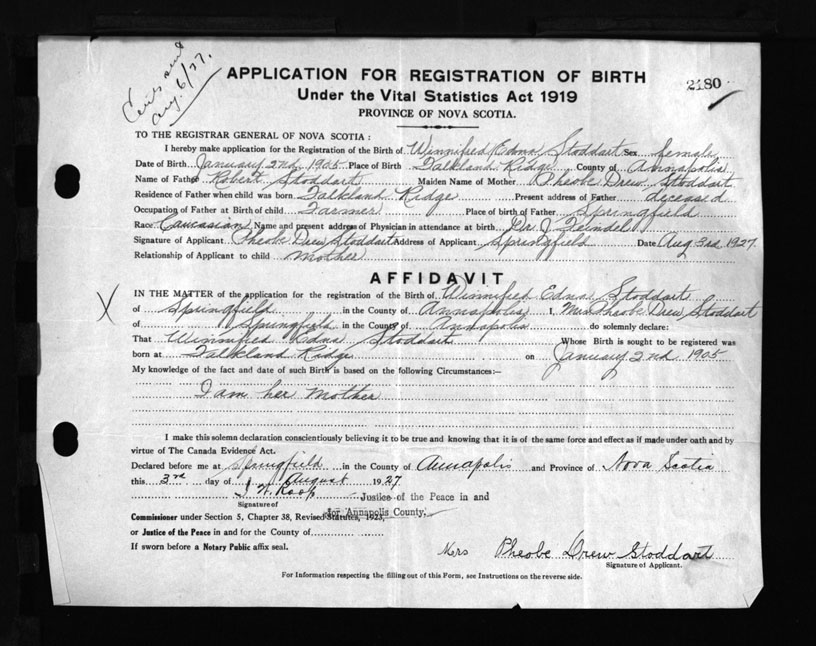 Certs sent
Aug. 6/27.
APPLICATION FOR REGISTRATION OF BIRTH
2180
Under the Vital Statistics Act 1919
PROVINCE OF NOVA SCOTIA.
TO THE REGISTRAR GENERAL OF NOVA SCOTIA:
I hereby make application for the Registration of the Birth of Winnifred Edna Stoddart Sex female
Date of Birth January 2nd 1905 Place of Birth Falkland Ridge County of Annapolis
Name of Father Robert Stoddart Maiden Name of Mother Pheobe Drew Stoddart
Residence of Father when child was born Falkland Ridge Present address of Father deceased
Occupation of Father at Birth of child Farmer Place of birth of Father Springfield
Race Caucasian Name and present address of Physician in attendance at birth Dr. J
Signature of Applicant Pheobe Drew Stoddart Address of Applicant Springfield Date Aug 3rd 1927
Relationship of Applicant to child mother
AFFIDAVIT
IN THE MATTER of the application for the registration of the Birth of Winnifred Edna Stoddart
of Springfield in the County of Annapolis I, Mrs Pheobe Drew Stoddart
of Springfield in the County of Annapolis do solemnly declare:
That Winnifred Edna Stoddart Whose Birth is sought to be registered was
born at Falkland Ridge on January 2nd 1905
My knowledge of the fact and date of such Birth is based on the following Circumstances:—
I am her Mother
I make this solemn declaration conscientiously believing it to be true and knowing that it is of the same force and effect as if made under oath and by
virtue of The Canada Evidence Act.
Declared before me at Springfield in the County of Annapolis and Province of Nova Scotia
this 3rd day of August 1927
Roop Justice of the Peace in and
Signature of for Annapolis County.
Commissioner under Section 5, Chapter 38, Revised Statutes, 1923,
or Justice of the Peace in and for the County of
If sworn before a Notary Public affix seal.
Mrs Pheobe Drew Stoddart
Signature of Applicant.
For Information respecting the filling out of this Form, see Instructions on the reverse side.